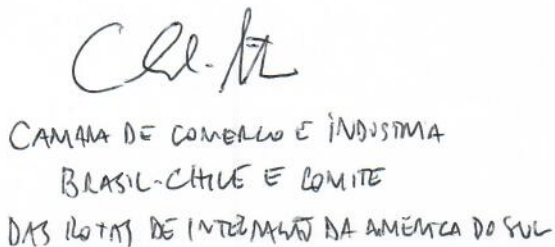 CAMARA DE COMERCIO E INDUSTRIA
BRASIL-CHILE E COMITE
DAS ROTAS DE INTEGRAÇÃO DA AMÉRICA DO SUL